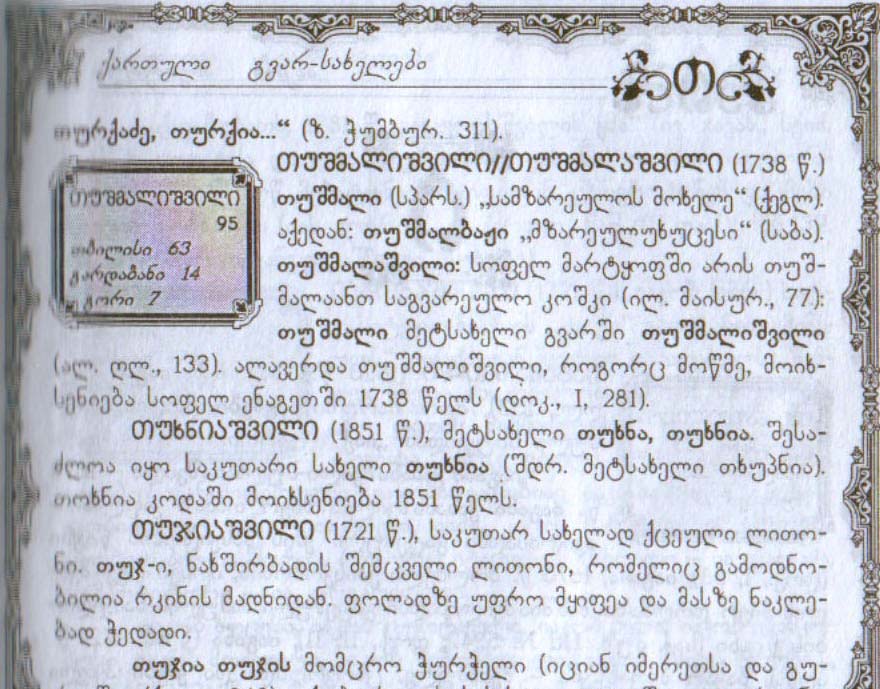 ქართული გვარ-სახელები
თ
თურქაძე, თურქია...“ (ზ. ჭუმბურ. 311).
თუშმალიშვილი//თუშმალაშვილი (1738 წ.)
თუშმალიშვილი
95
თბილისი 63
გარდაბანი 14
გორი 7
თუშმალი (სპარს.) „სამზარეულოს მოხელე“ (ქეგლ).
აქედან: თუშმალბაჟი „მზარეულუხუცესი“ (საბა).
თუშმალაშვილი: სოფელ მარტყოფში არის თუშ-
მალაანთ საგვარეულო კოშკი (ილ. მაისურ., 77):
თუშმალი მეტსახელი გვარში თუშმალიშვილი
(ალ. ღლ., 133). ალავერდა თუშმალიშვილი, როგორც მოწმე, მოიხ-
სენიება სოფელ ენაგეთში 1738 წელს (დოკ., I, 281).
თუხნიაშვილი (1851 წ.), მეტსახელი თუხნა, თუხნია. შესა-
ძლოა იყო საკუთარი სახელი თუხნია (შდრ. მეტსახელი თხუპნია).
თოხნია კოდაში მოიხსენიება 1851 წელს.
თუჯიაშვილი (1721 წ.), საკუთარ სახელად ქცეული ლითო-
ნი. თუჯ-ი, ნახშირბადის შემცველი ლითონი, რომელიც გამოდნო-
ბილია რკინის მადნიდან. ფოლადზე უფრო მყიფეა და მასზე ნაკლე-
ბად ჭედადი.
თუჯია თუჯის მომცრო ჭურჭელი (იციან იმერეთსა და გუ-